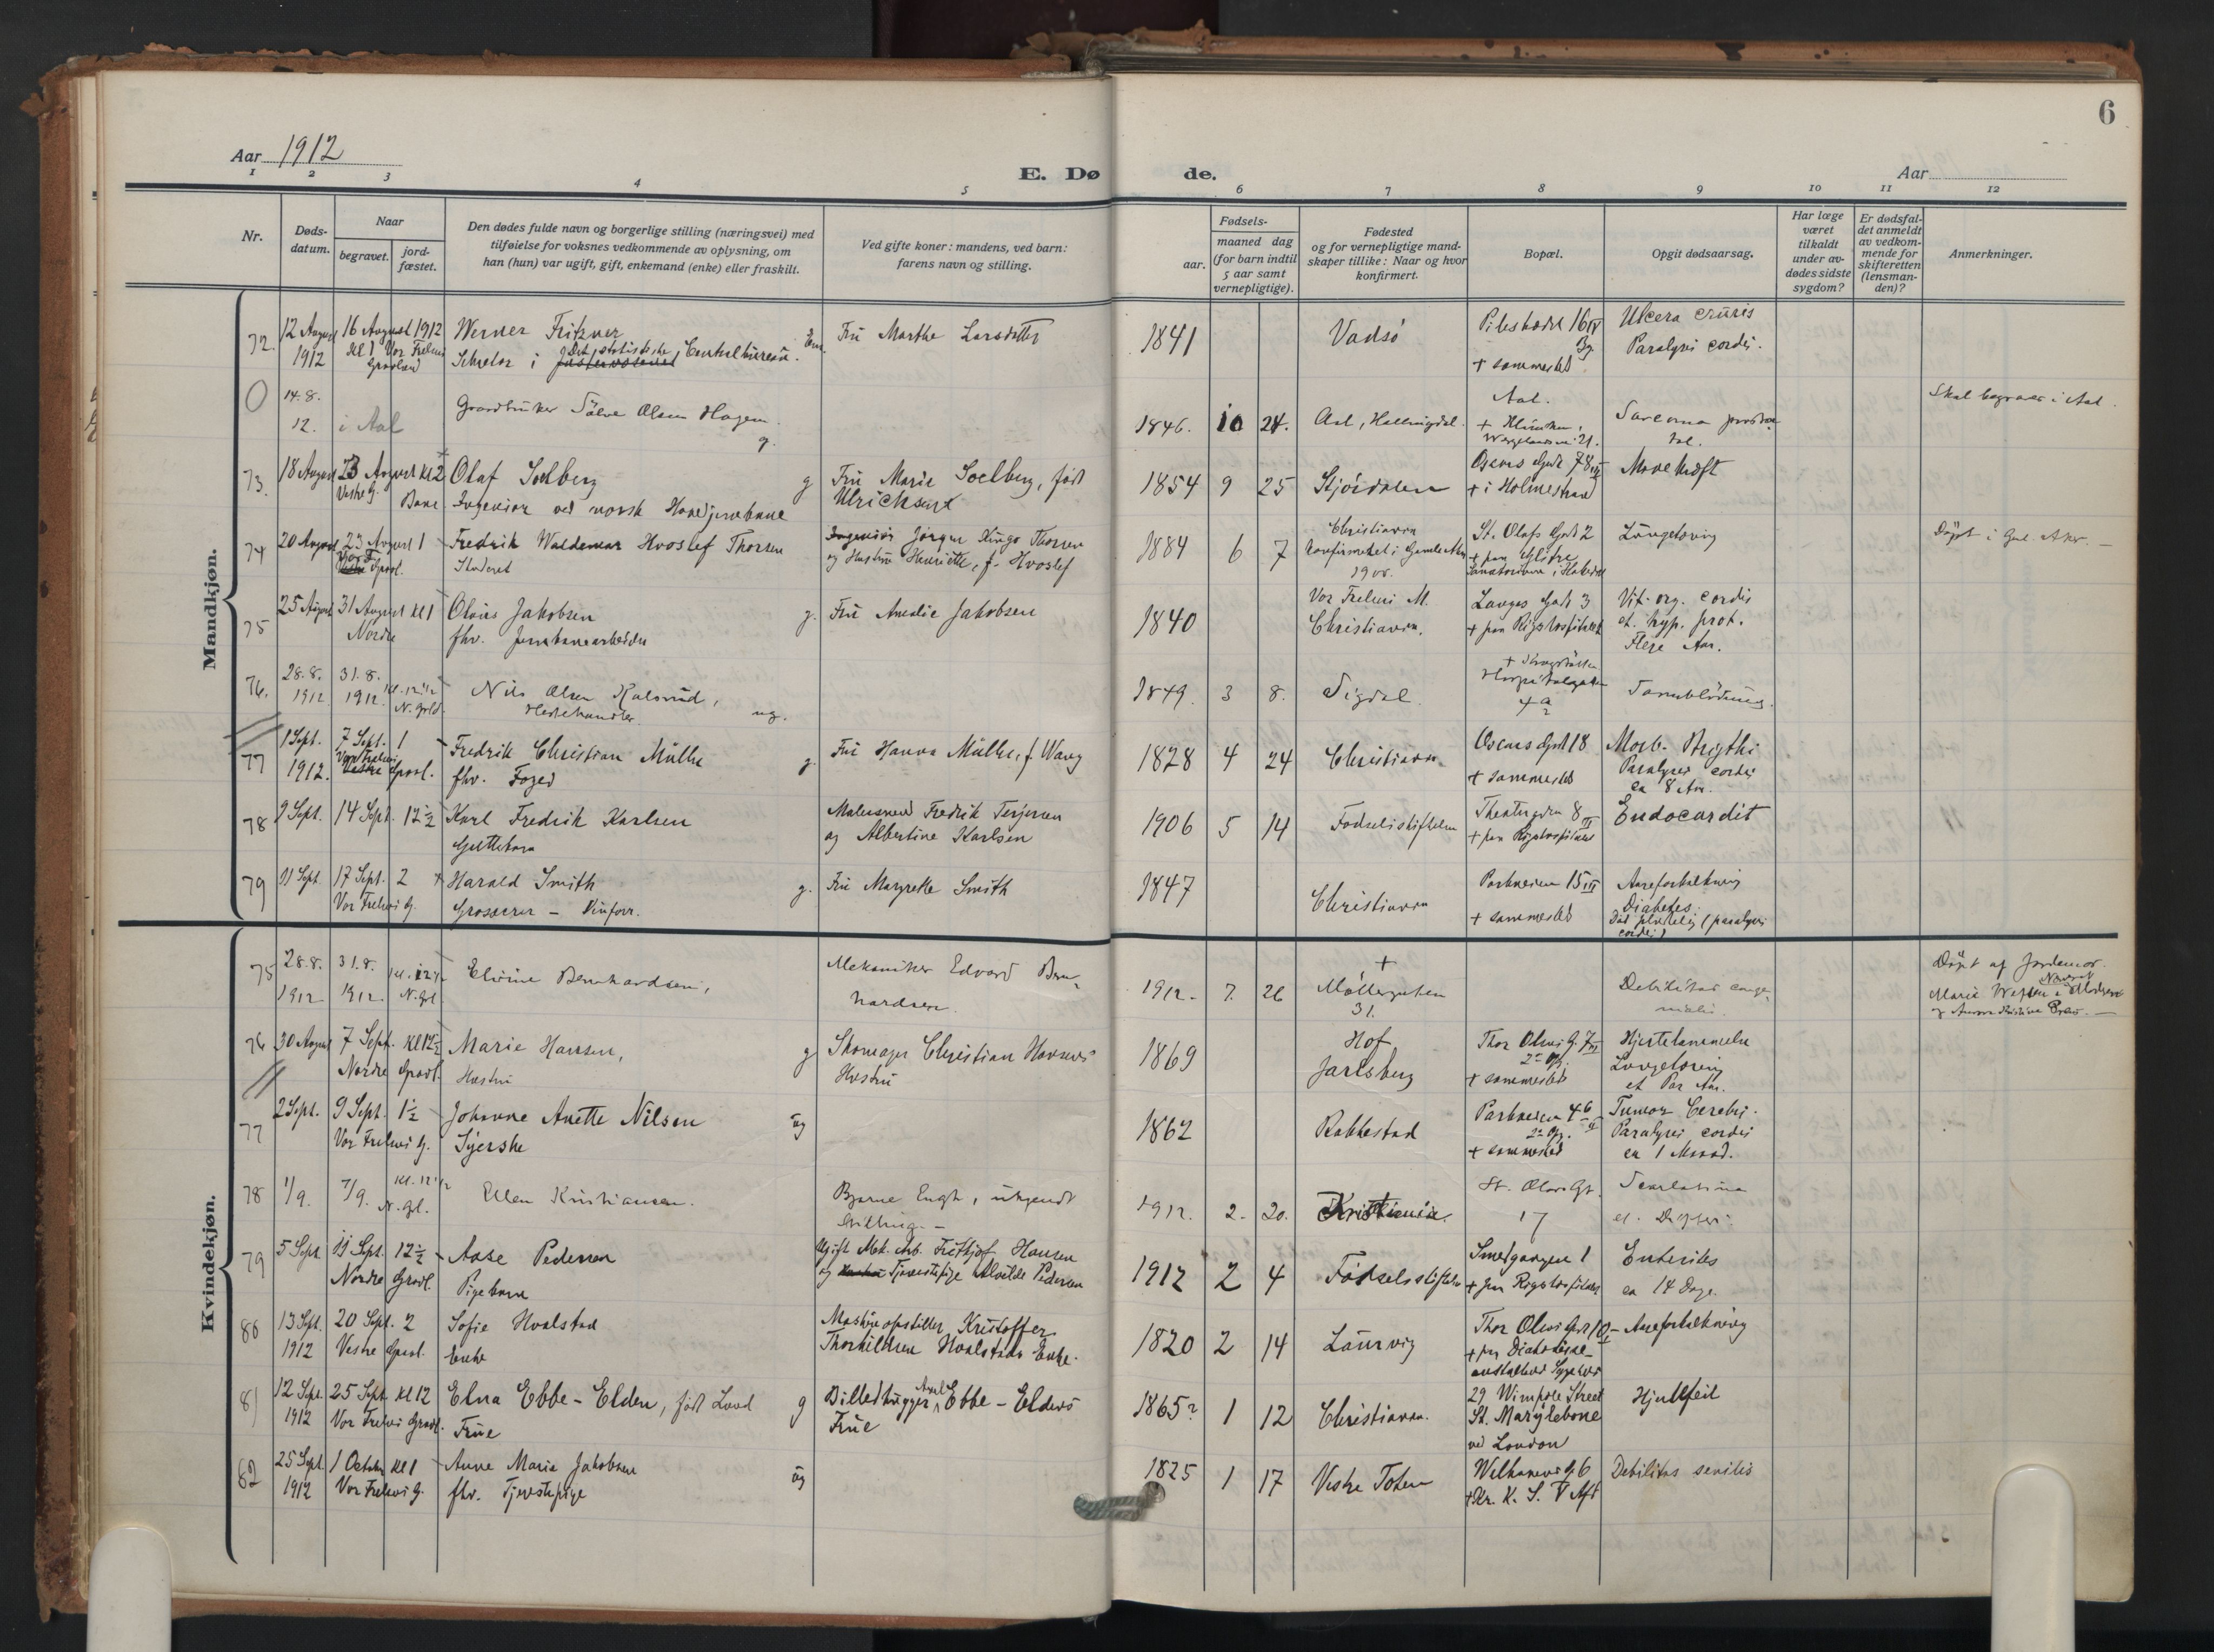 6
Aar 1912
E. Dø de.
Aar
1 2 3 4 5 6 7 8 9 10 11 12
Nr.
Døds-datum.
Naar
begravet.
jord-fæstet.
Den dødes fulde navn og borgerlige stilling (næringsvei) med
tilføielse for voksnes vedkommende av oplysning, om
han (hun) var ugift, gift, enkemand (enke) eller fraskilt.
Ved gifte koner: mandens, ved barn:
farens navn og stilling.
Fødsels-
aar.
maaned dag
(for barn indtil
5 aar samt
vernepligtige).
Fødested
og for vernepligtige mand-
skaper tillike: Naar og hvor
konfirmert.
Bopæl.
Opgit dødsaarsag.
Har læge
været
tilkaldt
under av-
dødes sidste
sygdom?
Er dødsfal-
det anmeldt
av vedkom-
mende for
skifteretten
(lensman-
den)?
Anmerkninger.
Mandkjøn.
72. 12 August 16 August 1912 Werner Fritzner Em. Fru Marthe Larsdatter 1841 Vadsö Pilestrædet 16 IV Ulcera cruris
1912 Kl 1 Vor Frelsers Sekretær i Det statistiske Centralbureau. Bg. Paralysis cordis.
Gravlund + sammested
0 14.8. Aal. Skal begraves i Aal.
12. i Aal Gaardbruker Sölve Olsen Hagen g. 1846. 10 24. Aal, Hallingdal. + Klinken, Sarcoma
Wergelandsvn. 21.
73. 18 August 23 August Kl 2 Olaf Soelberg g Fru Marie Soelberg, født 1854 9 25 Stjördalen Oscars Gade 78 Mavekræft
Vestre G. Ingeniör ved norsk Hovedjernbane Ulricksen + i Holmestrand
74 20 August 23 August 1 Fredrik Waldemar Hvoslef Thorsen Ingeniör Jörgen Kingo Thorsen 1884 6 7 Christiania St. Olafs Gade 2 Lungetæring Döpt i Gml. Aker. —
Vor Fr. Gravl. Student og Hustru Henriette, f. Hvoslef konfirmeret i Gamle Aker + paa Glitre
1900. Sanatorium i Hakedal
75 25 August 31 August Kl 1 Olaus Jakobsen g. Fru Amalie Jakobsen 1840 Vor Frelsers M. Langes Gade 3 Vit. org. cordis
Nordre fhv. Jernbanearbeider Christiania. + paa Rigshospitalet et. hyp. prot.
Flere Aar.
76. 28.8. 31.8. Kl. 12 1/2 Nils Olsen Kalsrud, ug. 1849. 3 8. Sigdal. + Krogstötten Tarmblödning.
1912. 1912. N. Grld. Hestehandler Hospitalgaten
4 a
77 1 Sept. 7 Sept. 1 Fredrik Christian Müller g. Fru Hanna Müller, f. Wang 1828 4 24 Christiania Oscars Gade 18 Morb. Brigthi
1912. Vor Frelsers Gravl. fhv. Foged + sammested Paralysis cordis
ca 8 Aar.
78 9 Sept. 14 Sept. 12 1/2 Karl Fredrik Karlsen Malersvend Fredrik Terjesen 1906 5 14 Födselsstiftelsen Theatergaden 8 III Endocardit
Guttebarn og Albertine Karlsen + paa Rigshospitalet
79 11 Sept. 17 Sept. 2 Harald Smith g. Fru Margrethe Smith 1847 Christiania Parkveien 15 III Aareforkalkning
Vor Frelsers G. Grosserer – Vinforr. + sammested Diabetes.
Död pludselig (paralysis
cordis)
Kvindekjøn.
75 28.8. 31.8. Kl. 12 1/2 Elvine Bernhardsen, Mekaniker Edvard Bern- 1912. 7. 26 + Möllergaten Debilitas conge- Döpt af Jordemor
1912. 1912. N. Grl. hardsen. 31. nialis. Marie
76 30 August 7 Sept. Kl 12 1/2 Marie Hansen, g Skomager Christian Hansens 1869 Hof Thor Olsens G. 7 III Hjertelammelse
Nordre Gravl. Hustru Hustru Jarlsberg + sammesteds Lungetæring
et Par Aar.
77 2 Sept. 9 Sept. 1 1/2 Johanne Anette Nilsen ug 1862 Rakkestad Parkveien 4 b Tumor Cerebri.
Vor Frelsers G. Syerske + sammested Paralysis cordis
ca 1 Maaned.
78 1/9. 7/9. Kl. 12 1/2 Ellen Kristiansen. Bjarne Engh, ukjendt 1912. 2. 20. Kristiania. St. Olavs Gt. Scarlatina
N. Grl. stilling. – 17
79 5 Sept. 11 Sept. 12 1/2 Aase Pedersen Ugift Mek. Arb. Fritthjof Hansen 1912 2 4 Födselsstiftelsen Smedgangen 1 Enterites
Nordre Gravl. Pigebarn og Tjenestepige Alvilde Pedersen + paa Rigshospitalet ca 14 Dage.
80 13 Sept. 20 Sept. 2 Sofie Hvalstad Maskinopstiller Kristoffer 1820 2 14 Laurvig Thor Olsens Gade 10 Aareforkalkning
1912 Vestre Gravl. Enke Thorkildsen Hvalstads Enke. + paa Diakonisse-
anstaltens Sygehus
81 12 Sept. 25 Sept. Kl 12 Elna Ebbe-Elden, født Lund g Billedhugger Axel Ebbe-Eldens 1865? 1 12 Christiania. 29 Wimpole Street Hjertefeil
1912 Vor Frelsers Gravl. Frue Frue St. Marylebone
ved London
82 25 Sept. 1 October Kl 1 Anne Maria Jakobsen ug 1825 1 17 Vestre Toten 6 Debilitas senilis
1912 Vor Frelsers G. fhv. Tjenestepige + Kr. K. S. V Afd